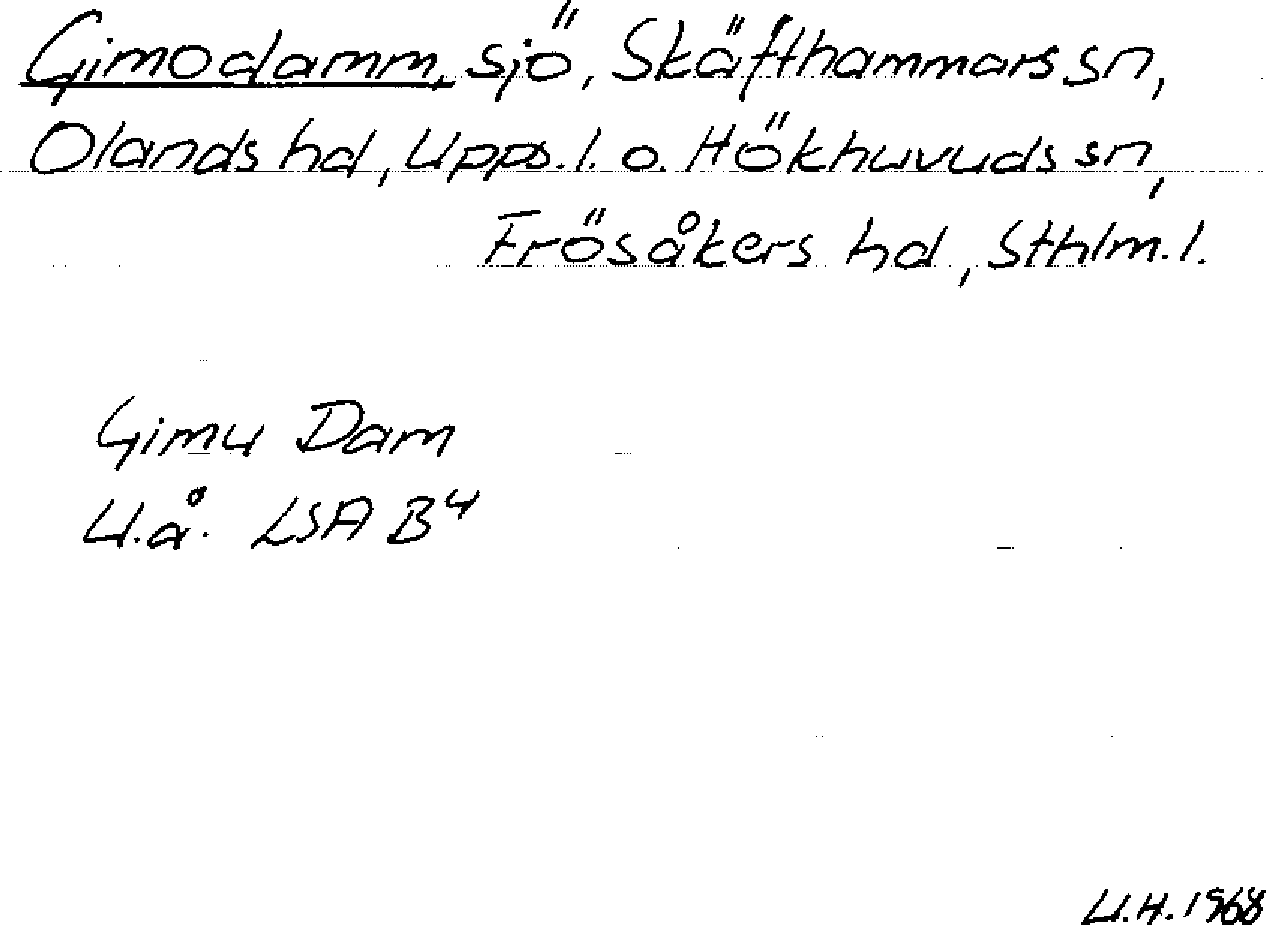 Gimodamm, sjö, Skäfthammars sn,
Olands hd, Upps. l. o. Hökhuvuds sn,
Frösåkers hd, Sthlm. l.
Gimu Dam
U.å. LSA B4
U.H. 1968